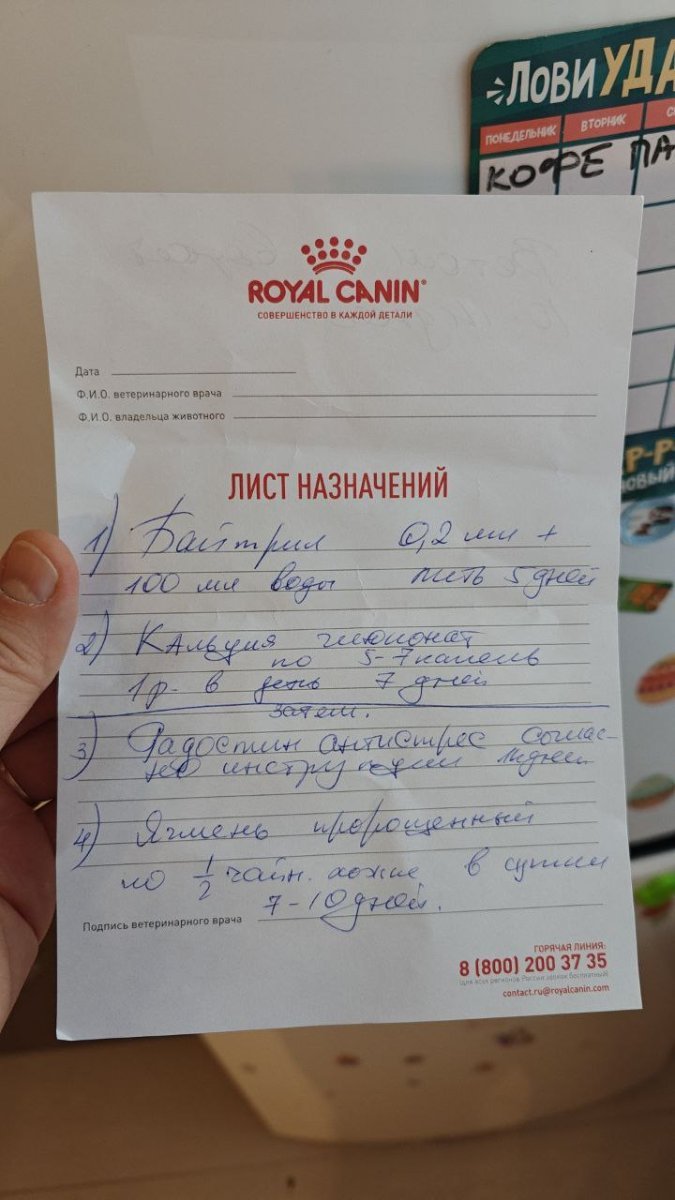 ЛОВИ УДА
ПОНЕДЕЛЬНИК
ВТОРНИК
КОФЕ ПА
ROYAL CANIN
СОВЕРШЕНСТВО В КАЖДОЙ ДЕТАЛИ
Дата
Ф.И.О. ветеринарного врача
Ф.И.О. владельца животного
ЛИСТ НАЗНАЧЕНИЙ
1) Байтрил 0,2 мл +
100 мл воды пить 5 дней
2) Кальция глюконат
по 5-7 капель
1 р. в день 7 дней
затем.
3) Радостин антистрес соглас-
но инструкции
4) Ячмень пророщенный
по 1/2 чайн. ложке в сутки
7-10 дней.
Подпись ветеринарного врача
ГОРЯЧАЯ ЛИНИЯ:
8 (800) 200 37 35
(для всех регионов России звонок бесплатный)
contact.ru@royalcanin.com